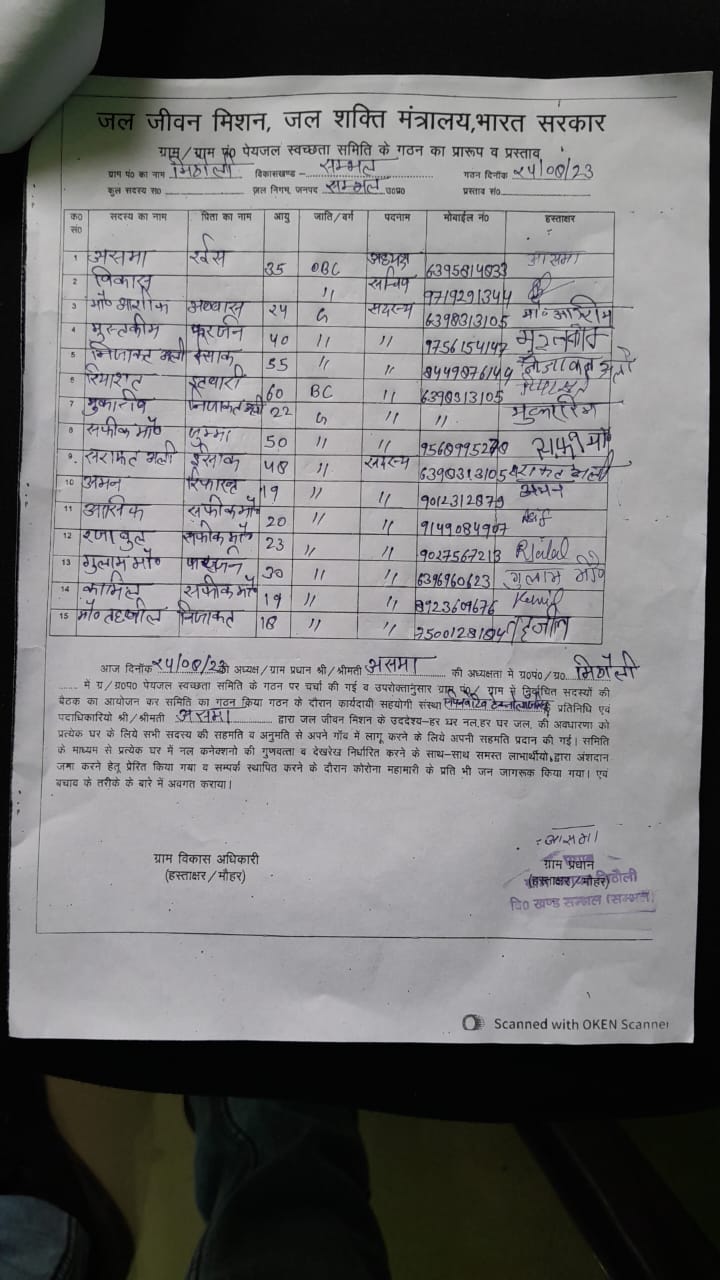 जल जीवन मिशन, जल शक्ति मंत्रालय,भारत सरकार
ग्राम/ ग्राम पं0 पेयजल स्वच्छता समिति के गठन का प्रारूप व प्रस्ताव
ग्राम पं0 का नाम मिठौली विकासखण्ड – सम्भल गठन दिनॉक २५/०८/23
कुल सदस्य सं0 जल निगम, जनपद सम्भल उ0प्र0 प्रस्ताव सं0
क0 सं0 सदस्य का नाम पिता का नाम आयु जाति/वर्ग पदनाम मोबाईल नं0 हस्ताक्षर
1 असमा रईस 35 OBC अध्यक्ष 6395814833 आसमा
2 विकास 〃 सचिव 9719291344
3 मौ० अब्बास २५ 〃 सदस्य 6398313105
4 मुस्तकीम 40 〃 〃 9756154147
5 निजाकत अली ईसाक 35 〃 〃 8449876149 निजाकत अली
6 रियासत 60 BC 〃 6398313105 रियासत
7 निजाकत अली 22 〃 〃 〃
8 सफीक मौ० जुम्मा 50 〃 〃
9 सराफत अली ईसाक 48 〃 सदस्य 6398313105
10 अमन 19 〃 〃 9012312879 अमन
11 आसिफ सफीक मौ० 20 〃 〃 9149084907 Asif
12 सफीक मौ० 23 〃 〃 9027567213
13 गुलाम मौ० 30 〃 〃 6396960623 गुलाम मौ०
14 कामिल सफीक मौ० 19 〃 〃 8923609676
15 मौ० तहजील निजाकत 18 〃 〃
आज दिनॉक २५/०८/23 को अध्यक्ष/ग्राम प्रधान श्री/श्रीमती असमा की अध्यक्षता में ग्र0पं0/ग्रा. मिठौली
में ग्र/ग्र0प0 पेयजल स्वच्छता समिति के गठन पर चर्चा की गई व उपरोक्तानुसार ग्राम पं०/ ग्राम से निर्वाचित सदस्यों की
बैठक का आयोजन कर समिति का गठन किया गठन के दौरान कार्यदायी सहयोगी संस्था प्रतिनिधि एवं
पदाधिकारियो श्री/श्रीमती असमा द्वारा जल जीवन मिशन के उददेश्य–हर घर नल,हर घर जल, की अवधारणा को
प्रत्येक घर के लिये सभी सदस्य की सहमति व अनुमति से अपने गॉव में लागू करने के लिये अपनी सहमति प्रदान की गई। समिति
के माध्यम से प्रत्येक घर में नल कनेक्शनो की गुणवत्ता व देखरेख निर्धारित करने के साथ–साथ समस्त लाभार्थीयो,द्वारा अंशदान
जमा करने हेतू प्रेरित किया गया व सम्पर्क स्थापित करने के दौरान कोरोना महामारी के प्रति भी जन जागरूक किया गया। एवं
बचाव के तरीके के बारे में अवगत कराया।
आसमा
ग्राम विकास अधिकारी ग्राम प्रधान
(हस्ताक्षर/मौहर) (हस्ताक्षर/मौहर) मिठौली
वि0 खण्ड सम्भल (सम्भल)
Scanned with OKEN Scanner